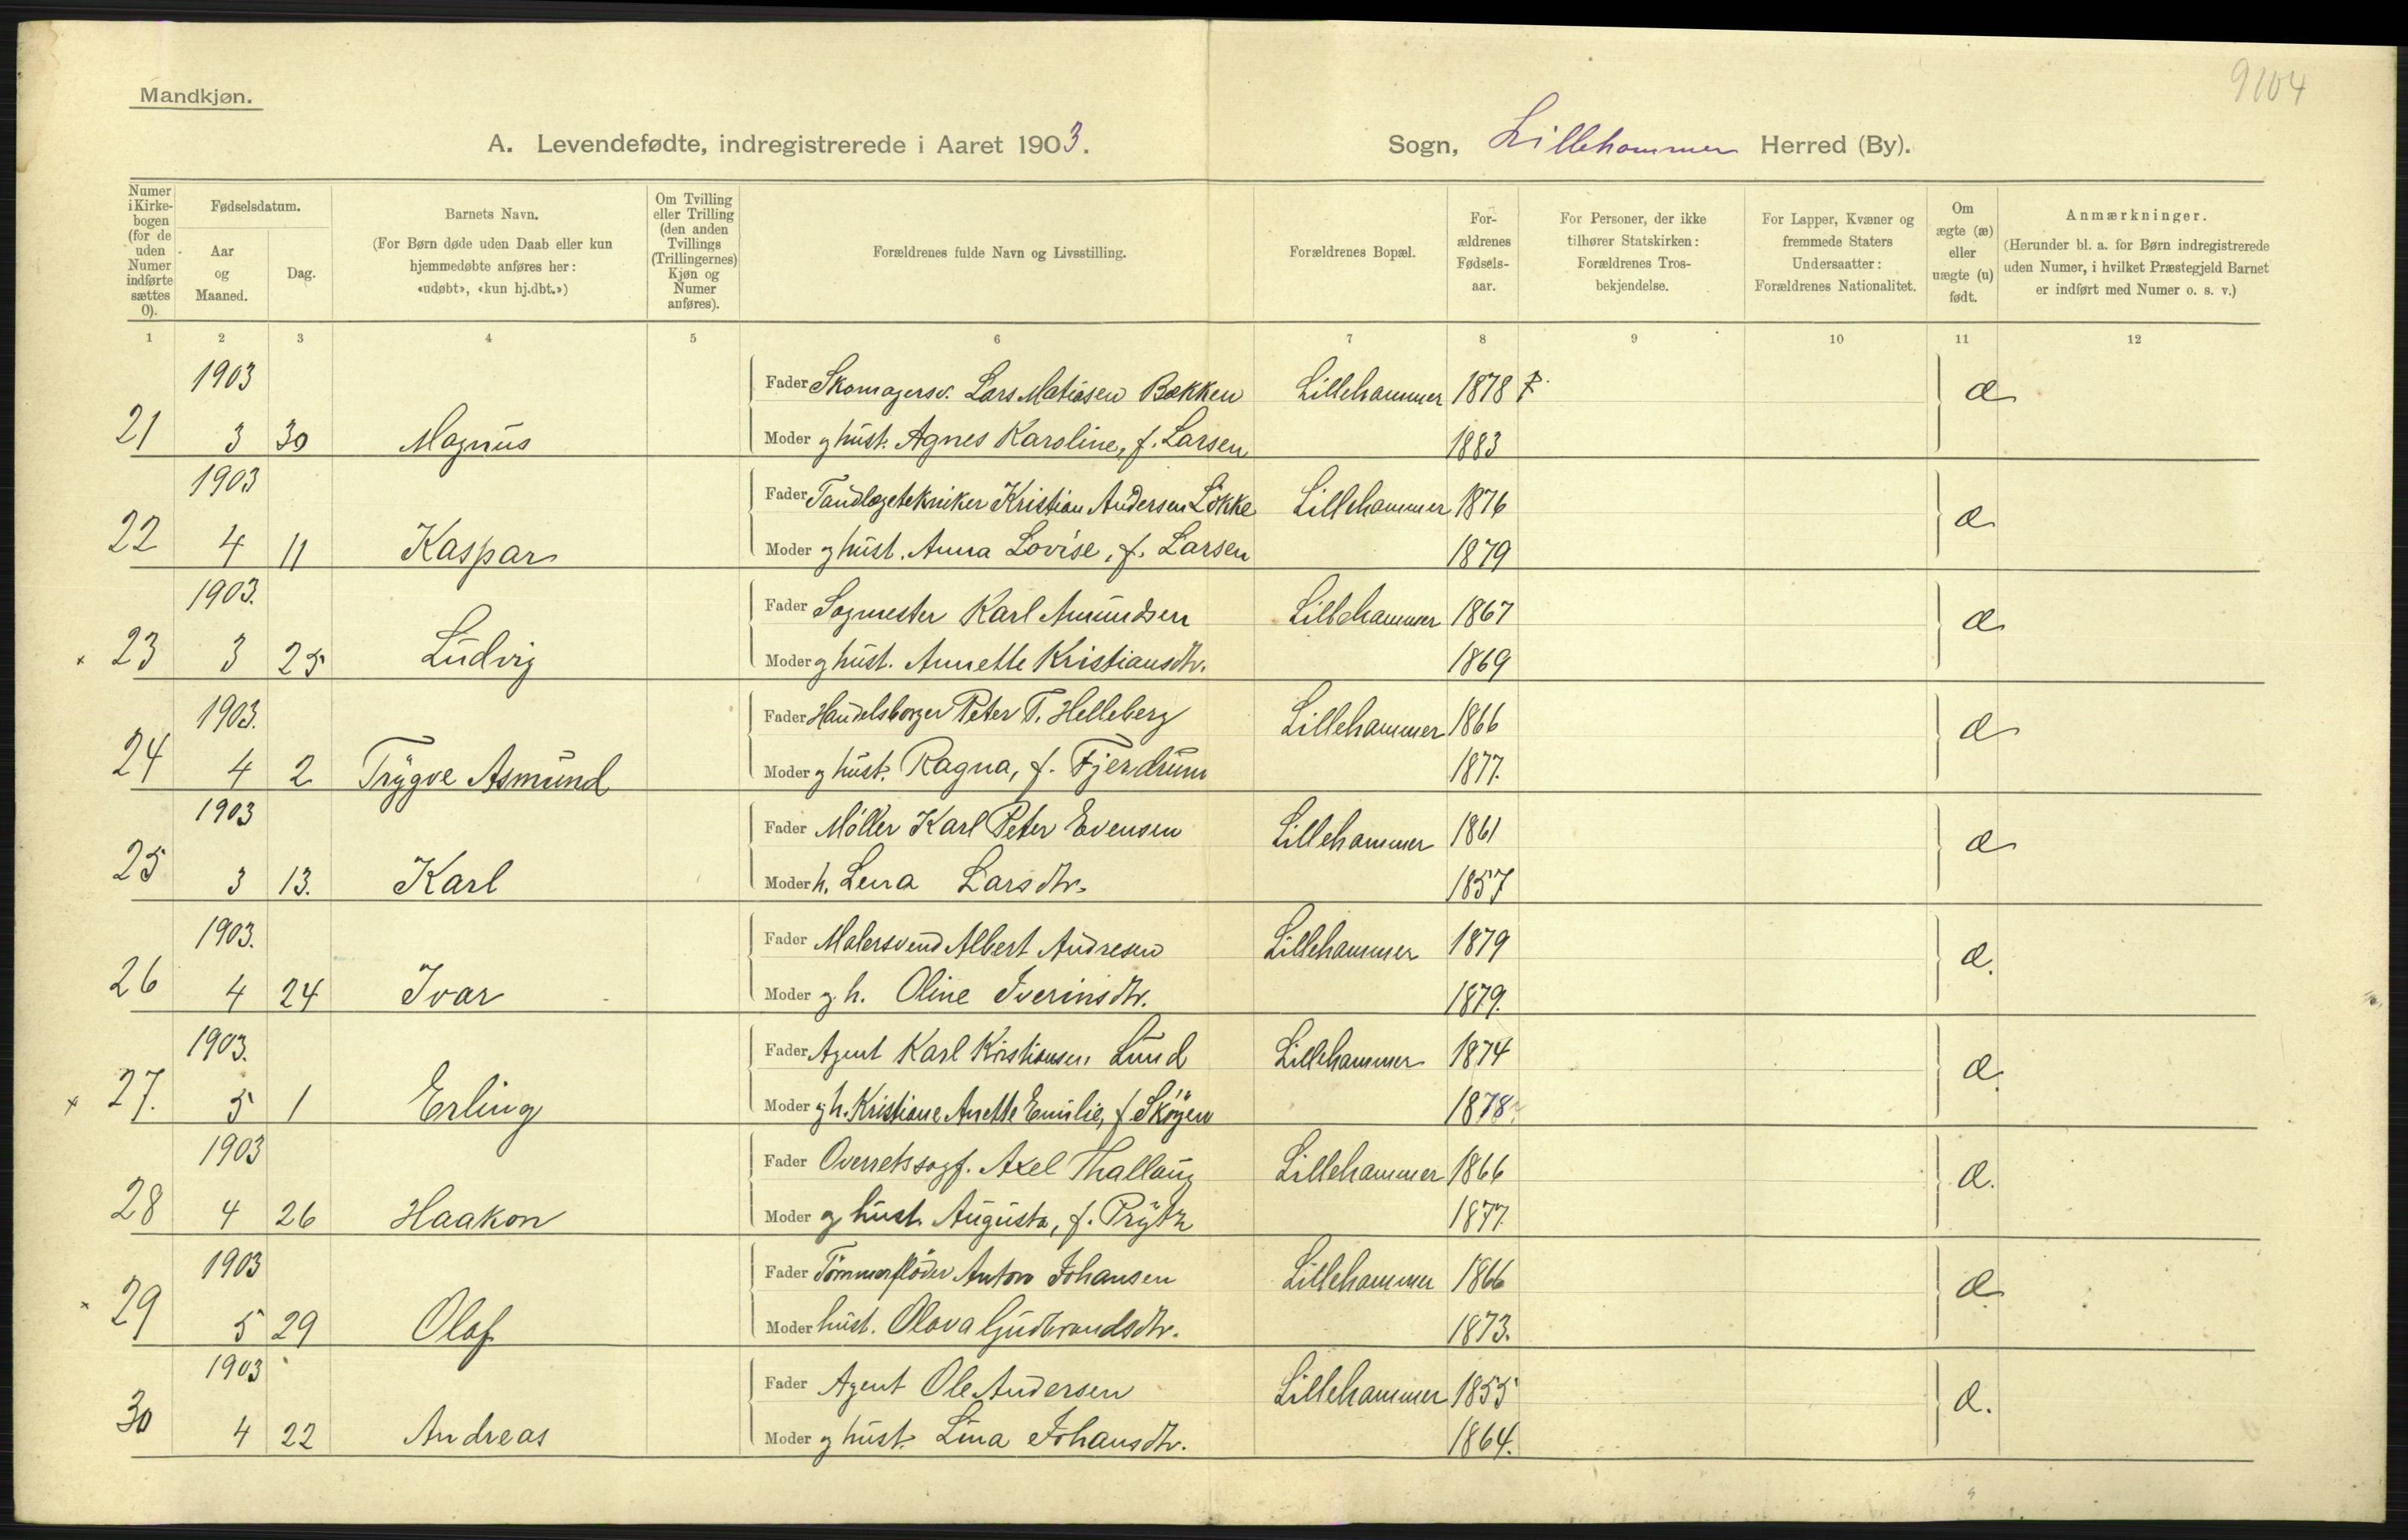 9104
Mandkjøn.
A. Levendefødte, indregistrerede i Aaret 1903.
Sogn, Lillehammer Herred (By).
Numer i Kirkebogen (for de uden Numer indførte sættes 0).
Fødselsdatum.
Aar og Maaned.
Dag.
Barnets Navn.
(For Børn døde uden Daab eller kun hjemmedøbte anføres her: «udøbt», «kun hj.dbt.»)
Om Tvilling eller Trilling (den anden Tvillings (Trillingernes) Kjøn og Numer anføres).
Forældrenes fulde Navn og Livsstilling.
Forældrenes Bopæl.
Forældrenes Fødselsaar.
For Personer, der ikke tilhører Statskirken: Forældrenes Trosbekjendelse.
For Lapper, Kvæner og fremmede Staters Undersaatter: Forældrenes Nationalitet.
Om ægte (æ) eller uægte (u) født.
Anmærkninger.
(Herunder bl. a. for Børn indregistrerede uden Numer, i hvilket Præstegjeld Barnet er indført med Numer o. s. v.)
1 2 3 4 5 6 7 8 9 10 11 12
1903 Fader Skomagersv. Lars Matiasen Bækken Lillehammer 1878 æ
21 3 30 Magnus Moder g hust. Agnes Karoline, f. Larsen 1883
1903 Fader Tandlægetekniker Kristian Andersen Løkke Lillehammer 1876 æ
22 4 11 Kaspar Moder g hust. Anna Lovise, f. Larsen 1879
1903. Fader Sagmester Karl Amundsen Lillehammer 1867 æ
× 23 3 25 Ludvig Moder g hust. Annette Kristiansdtr. 1869
1903. Fader Handelsborger Peter T. Helleberg Lillehammer 1866 æ
24 4 2 Trygve Asmund Moder g hust. Ragna, f. Fjerdrum 1877.
1903 Fader Møller Karl Peter Evensen Lillehammer 1861 æ
25 3 13. Karl Moder h. Lena Larsdtr. 1857
1903. Fader Malersvend Albert Andresen Lillehammer 1879 æ.
26 4 24 Ivar Moder g. h. Oline Iverinsdtr. 1879.
1903. Fader Agent Karl Kristiansen Lund Lillehammer 1874 æ.
× 27. 5 1 Erling Moder g h. Kristiane Anette Emilie, f Skøyen 1878.
1903 Fader Overretssagf. Axel Thallaug Lillehammer 1866 æ.
28 4 26 Haakon Moder g hust. Augusta, f. Prytz 1877.
1903 Fader Tømmerfløder Anton Johansen Lillehammer 1866 æ
× 29 5 29 Olaf Moder hust. Olava Gudbrandsdtr. 1873.
1903 Fader Agent Ole Andersen Lillehammer 1855 æ.
30 4 22 Andreas Moder g hust. Lina Johansdtr. 1864.